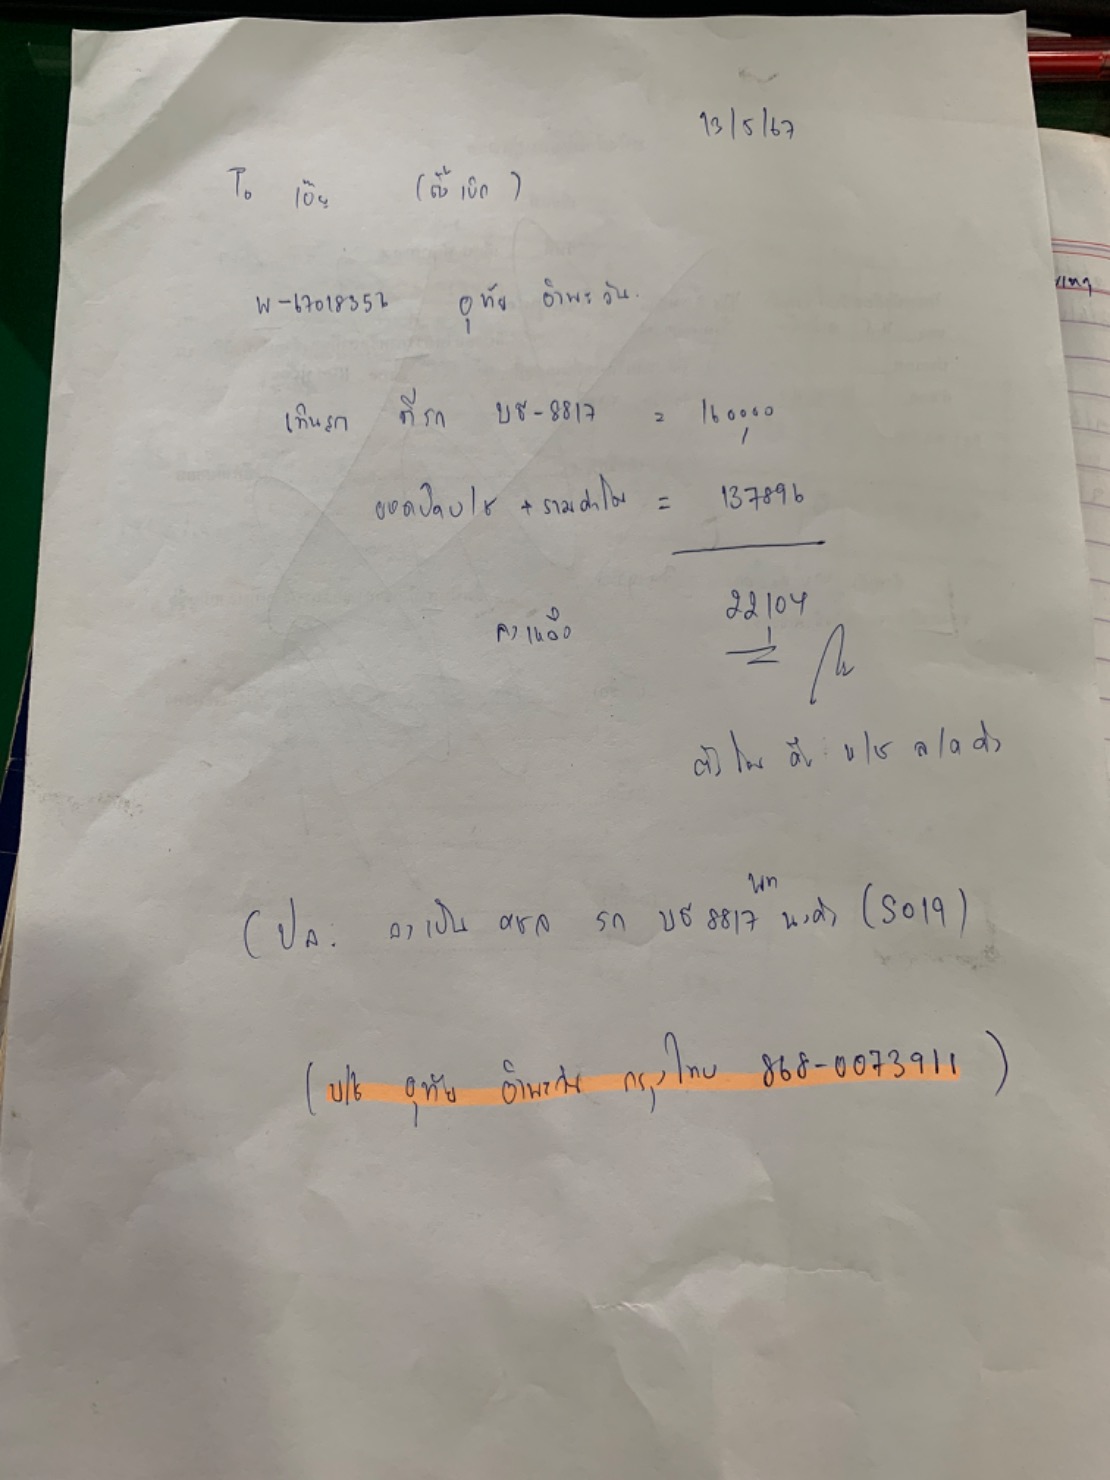 13/5/67
To เอ๊ะ (ตั๊ เบิก)
W-67018352 อุทัย อำพะวัน.
เทินรถ ตีรถ บธ-8817 = 160,000
ยอดปิดบ/ช + รวมค่าโอน = 137896
คงเหลือ 22,104
ตั้งโอน คืน บ/ช ล/ค
(ปล. ลงเป็น รถ บธ 8817 นก (S019)
(บ/ช อุทัย อำพะวัน กรุงไทย 868-0073911)